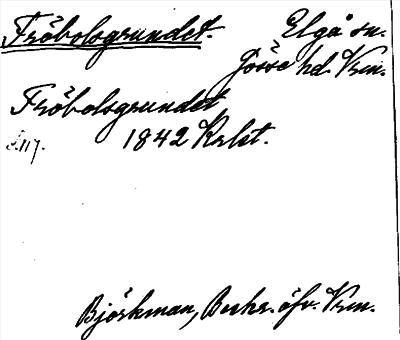 Fröbolsgrundet. Elgå sn.
Jösse hd. Vrm.
Fröbolsgrundet
1842 Krlst.
s. 117.
Björkman, Beskr. öfv. Vrm.